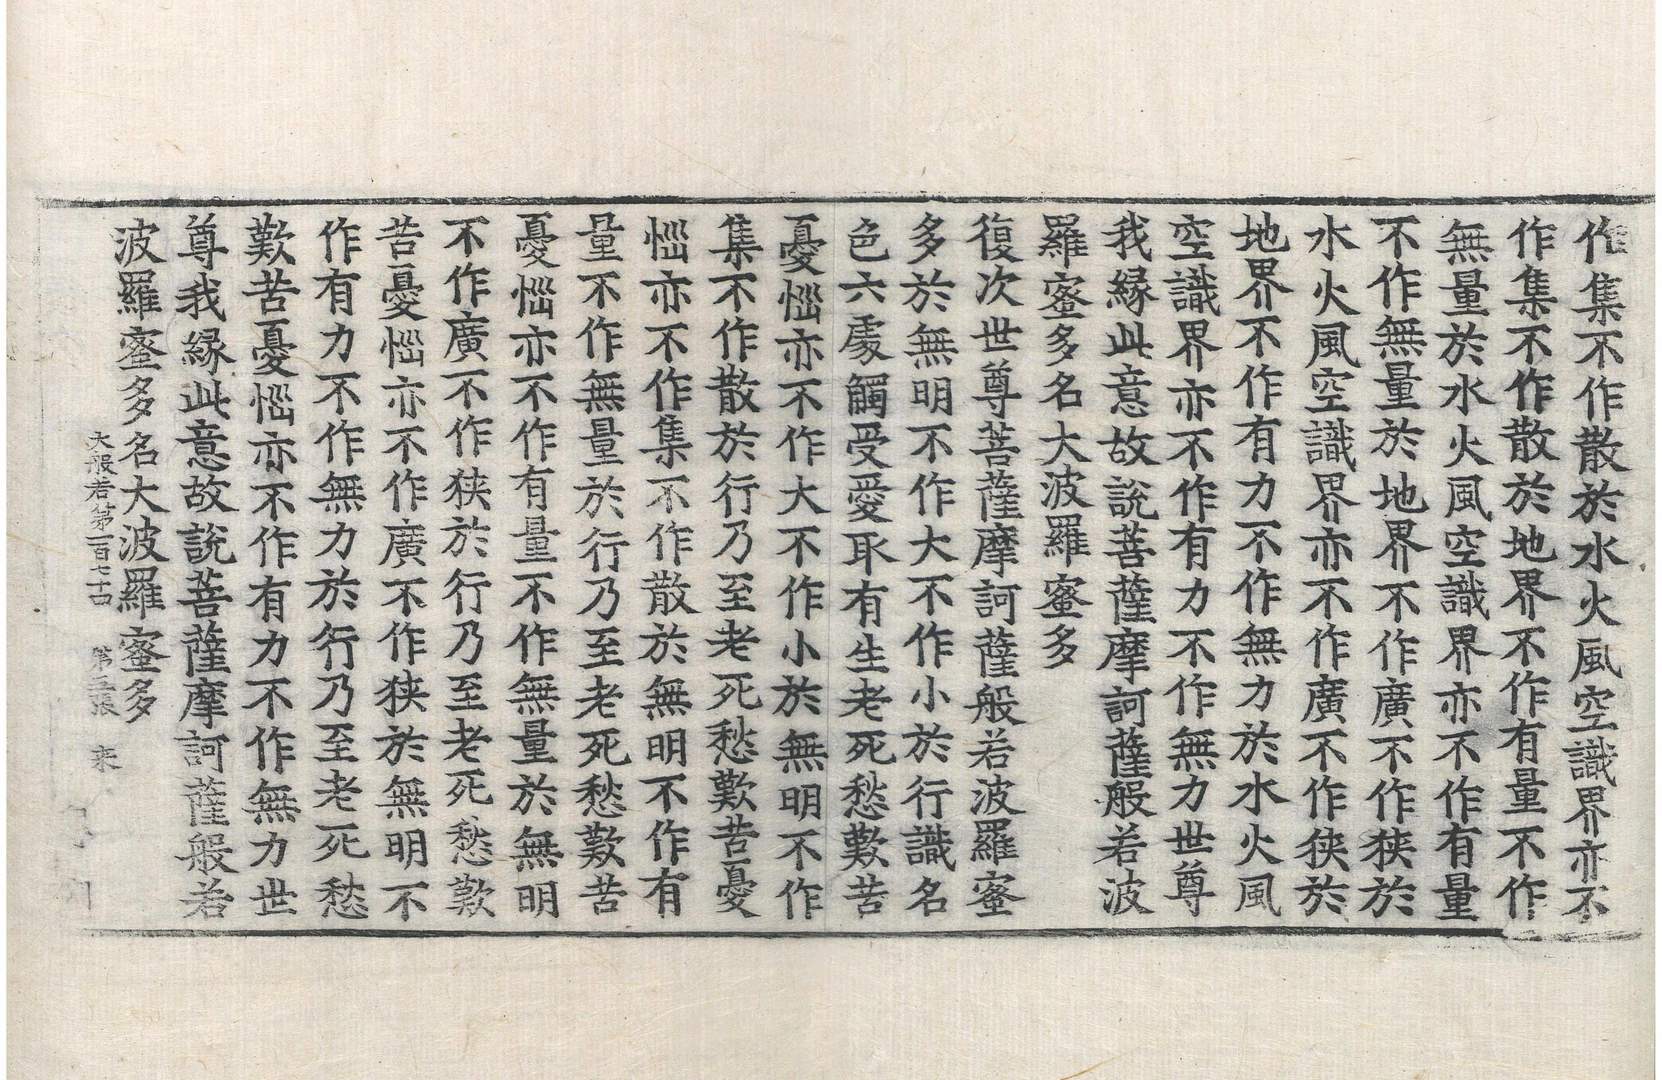 作集不作散於水火風空識界亦不
作集不作散於地界不作有量不作
無量於水火風空識界亦不作有量
不作無量於地界不作廣不作狹於
水火風空識界亦不作廣不作狹於
地界不作有力不作無力於水火風
空識界亦不作有力不作無力世尊
我緣此意故說菩薩摩訶薩般若波
羅蜜多名大波羅蜜多
復次世尊菩薩摩訶薩般若波羅蜜
多於無明不作大不作小於行識名
色六處觸受愛取有生老死愁歎苦
憂惱亦不作大不作小於無明不作
集不作散於行乃至老死愁歎苦憂
惱亦不作集不作散於無明不作有
量不作無量於行乃至老死愁歎苦
憂惱亦不作有量不作無量於無明
不作廣不作狹於行乃至老死愁歎
苦憂惱亦不作廣不作狹於無明不
作有力不作無力於行乃至老死愁
歎苦憂惱亦不作有力不作無力世
尊我緣此意故說菩薩摩訶薩般若
波羅蜜多名大波羅蜜多
大般若第一百七十四 第五張 來